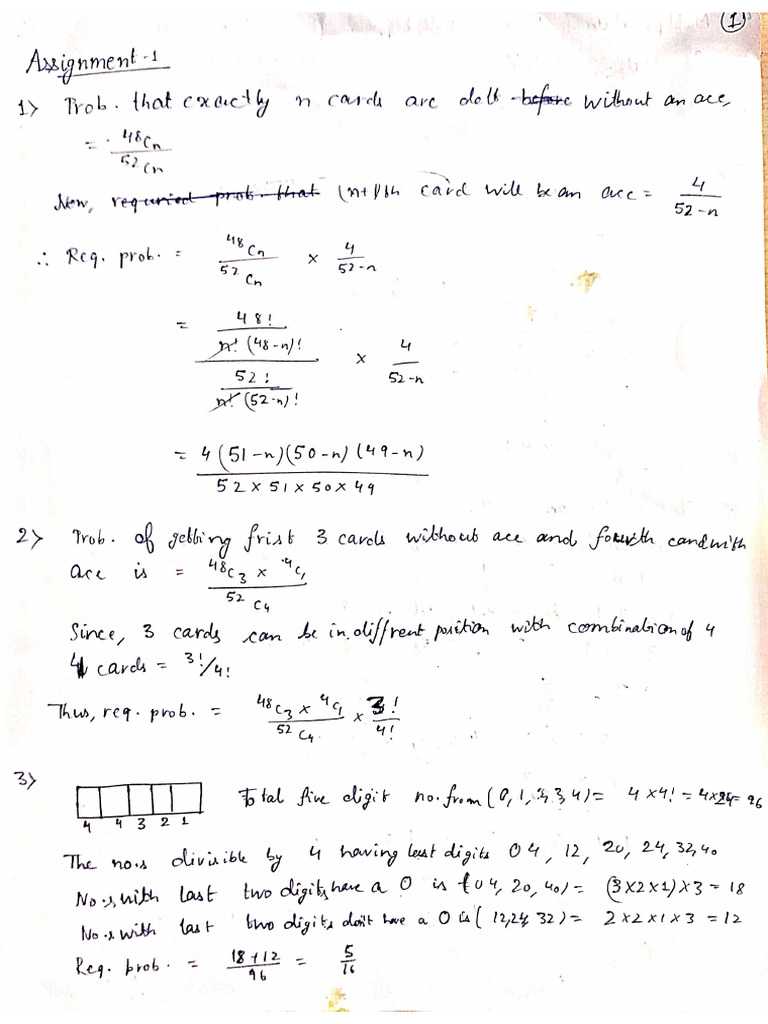 1
Assignment-1
1> Prob. that exactly n cards are delt before without an ace,
= 48Cn / 52Cn
Now, requried prob. that (n+1)th card will be an ace = 4 / 52-n
∴ Req. prob. = 48Cn / 52Cn × 4 / 52-n
= 48! / n! (48-n)! / 52! / n! (52-n)! × 4 / 52-n
= 4(51-n)(50-n)(49-n) / 52×51×50×49
2> Prob. of getting frist 3 cards without ace and fourth card with
ace is = 48C3 × 4C1 / 52C4
Since, 3 cards can be in diffrent position with combination of 4
cards = 3!/4!
Thus, req. prob. = 48C3 × 4C1 / 52C4 × 3! / 4!
3>
4 4 3 2 1
Total five digit no. from (0, 1, 2, 3, 4) = 4×4! = 4×24 = 96
The no.s divisible by 4 having last digits 04, 12, 20, 24, 32, 40
No.s with last two digits have a 0 is (04, 20, 40) = (3×2×1)×3 = 18
No.s with last two digits don't have a 0 is (12, 24, 32) = 2×2×1×3 = 12
Req. prob. = 18+12 / 96 = 5 / 16